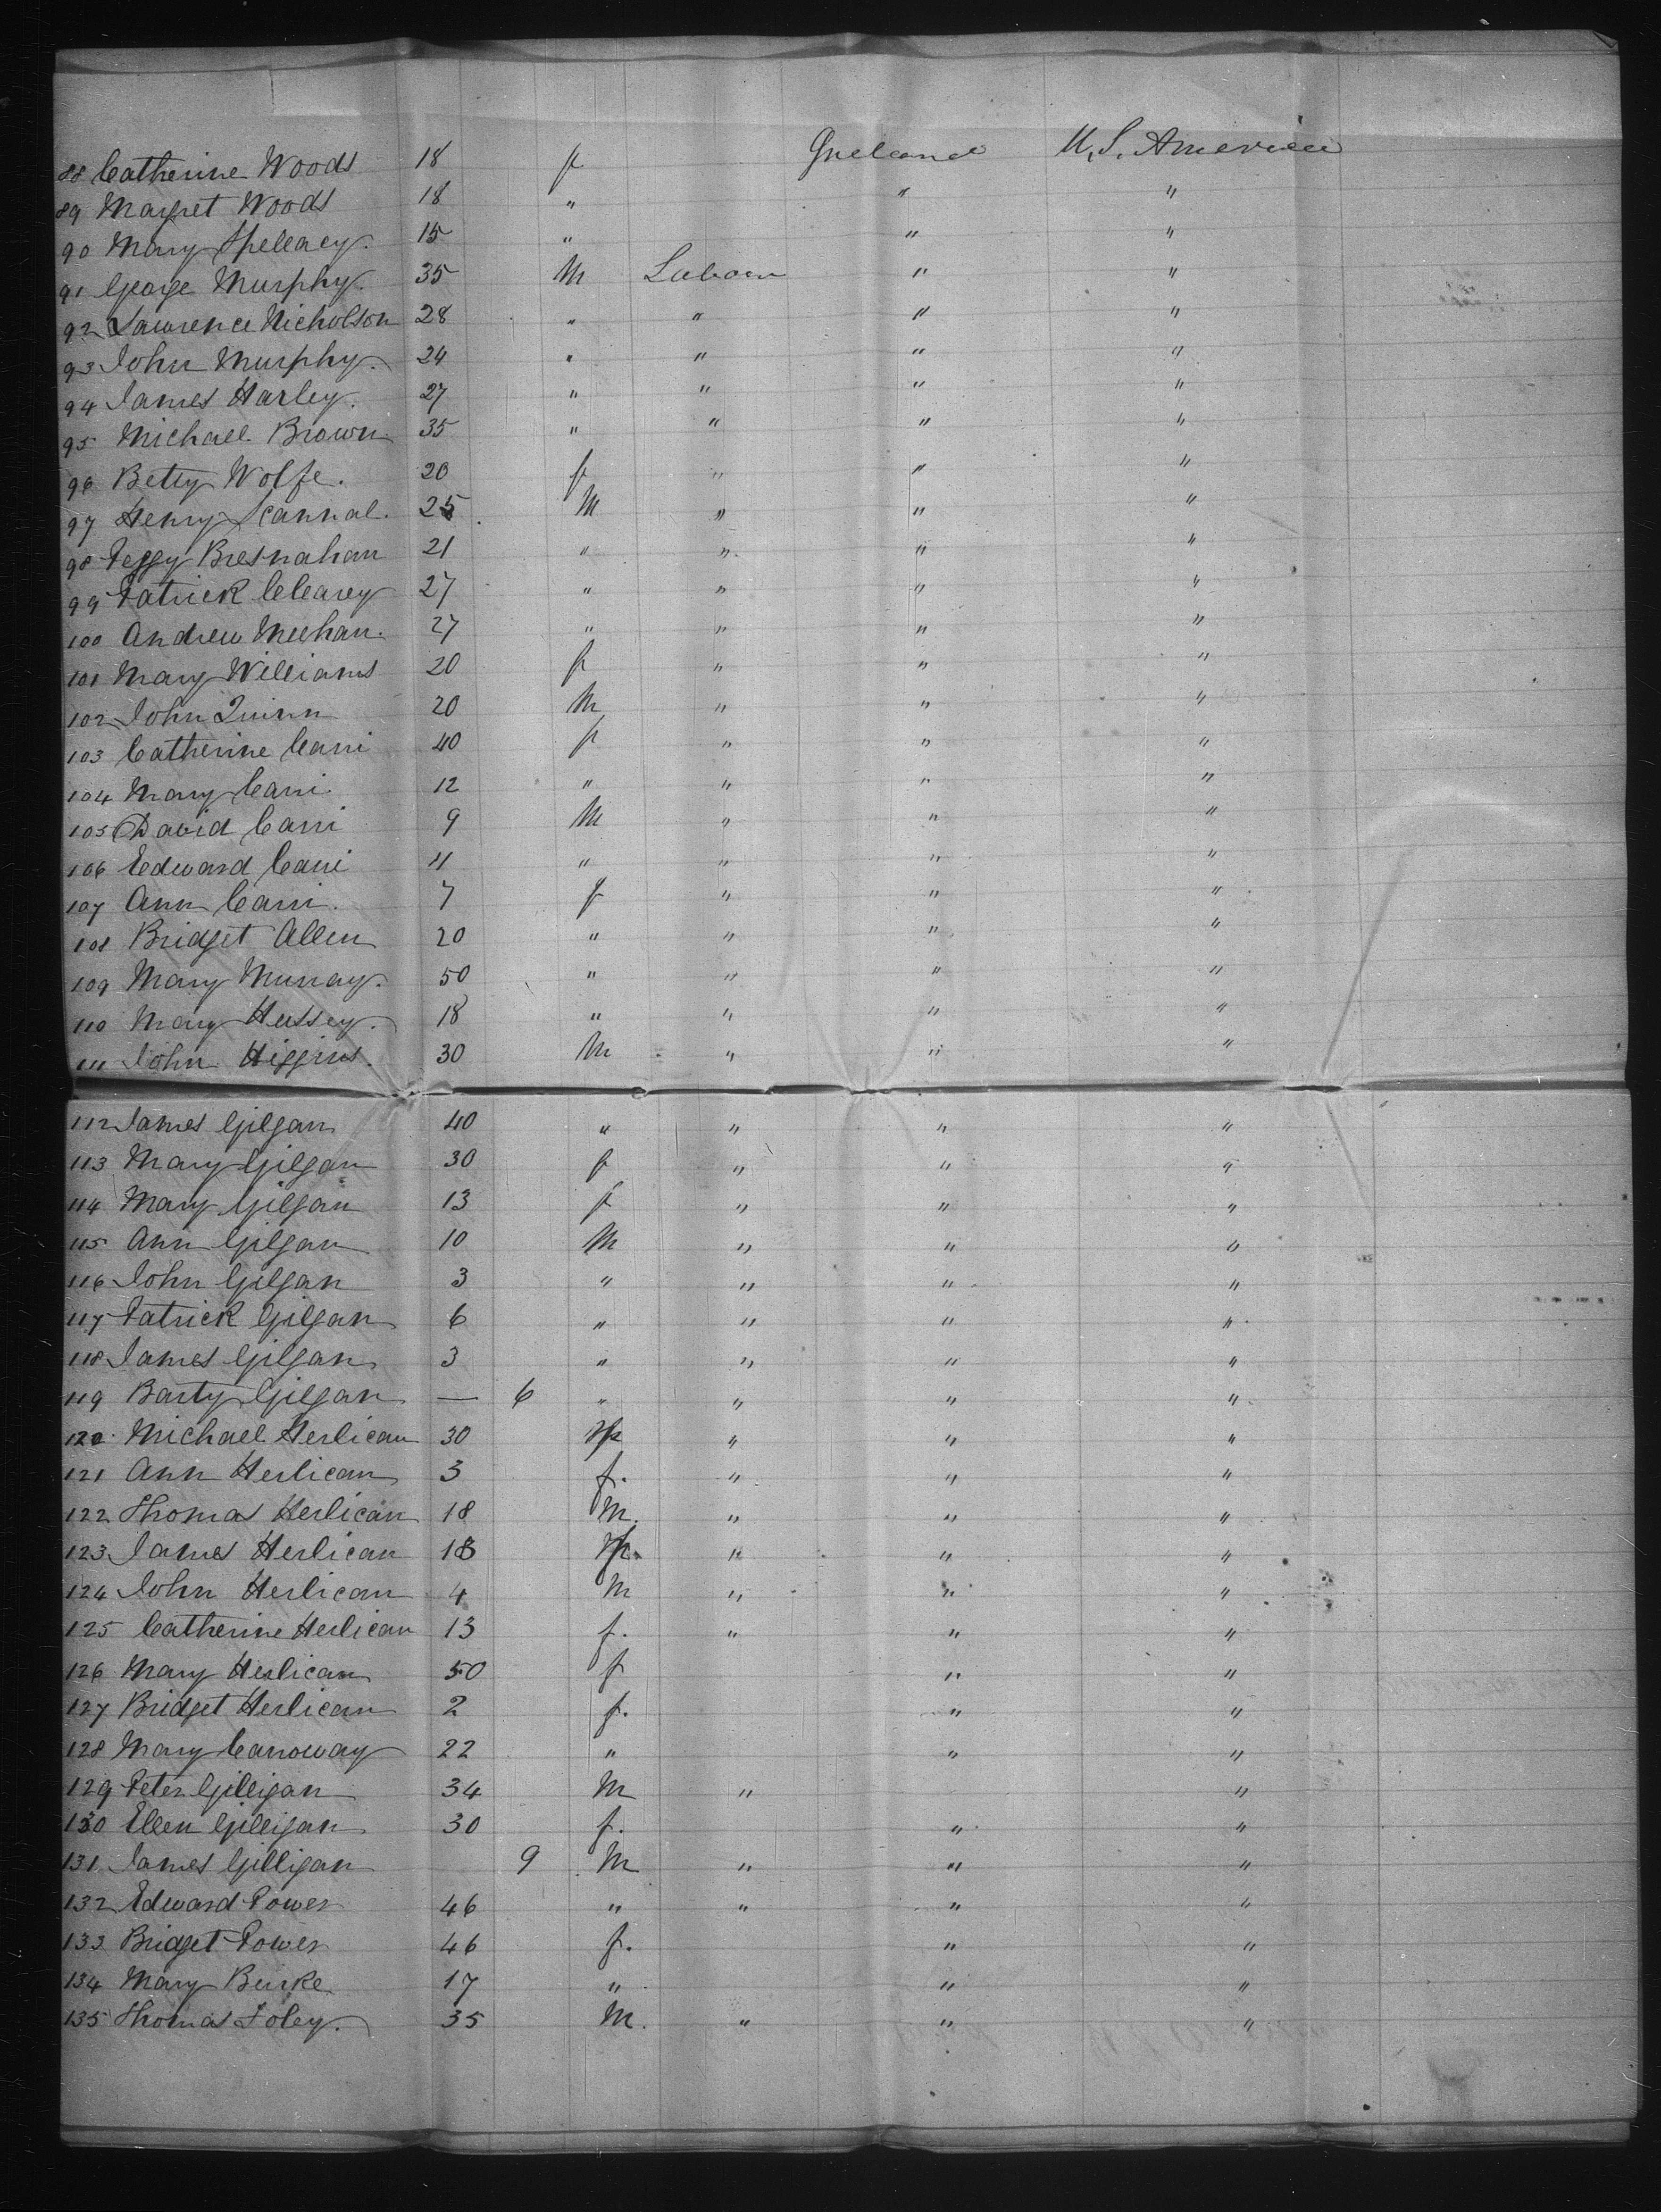 88 Catherine Woods 18 f Ireland U.S. America
89 Margret Woods 18 " " "
90 Mary Spellacy. 15 " " "
91 George Murphy. 35 M Labour " "
92 Lawrence Nicholson 28 " " " "
93 John Murphy. 24 " " " "
94 James Harley. 27 " " " "
95 Michael Brown 35 " " " "
96 Betty Wolfe. 20 f " " "
97 Henry Scannal. 25 M " " "
98 Peggy Bresnahan 21 " " " "
99 Patrick Clearey 27 " " " "
100 Andrew Meehan. 27 " " " "
101 Mary Williams 20 f " " "
102 John Quinn 20 M " " "
103 Catherine Carri 40 f " " "
104 Mary Carri. 12 " " " "
105 David Carri 9 M " " "
106 Edward Carri 11 " " " "
107 Ann Carri. 7 f " " "
108 Bridget Allen 20 " " " "
109 Mary Murray. 50 " " " "
110 Mary Hussey. 18 " " " "
111 John Higgins. 30 M " " "
112 James Gilgan 40 " " " "
113 Mary Gilgan 30 f " " "
114 Mary Gilgan 13 f " " "
115 Ann Gilgan 10 M " " "
116 John Gilgan 3 " " " "
117 Patrick Gilgan 6 " " " "
118 James Gilgan 3 " " " "
119 Barty Gilgan — 6 " " " "
120 Michael Herlican 30 " " "
121 Ann Herlican 3 f. " " "
122 Thomas Herlican 18 M. " " "
123 James Herlican 18 " " "
124 John Herlican 4 M " " "
125 Catherine Herlican 13 f. " " "
126 Mary Herlican 50 f " "
127 Bridget Herlican 2 f. " "
128 Mary Carroway 22 " " "
129 Peter Gilligan 34 M " "
130 Ellen Gilligan 30 f. " "
131 James Gilligan 9 M " " "
132 Edward Power 46 " " " "
133 Bridget Power 46 f. " "
134 Mary Burke 17 " " "
135 Thomas Foley. 35 M. " " "